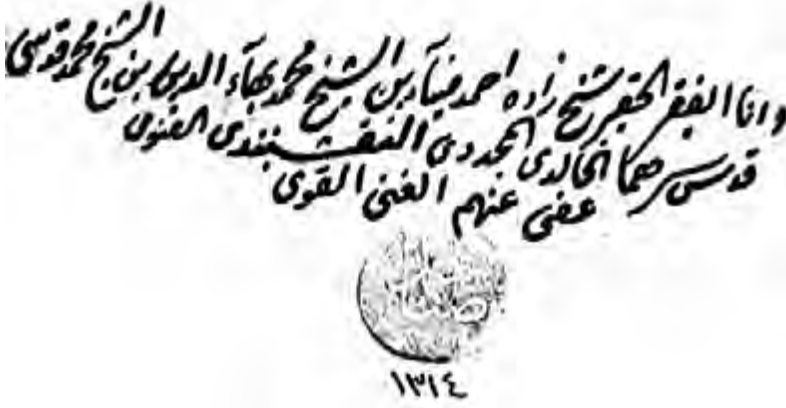 وانا الفقير الحقير شيخ زاده احمد ضياء بن الشيخ محمد بهاء الدين بن الشيخ محمد قدسى
قدس سرهما الخالدى المجددى النقشبندى القنوى
عفى عنهم الغنى القوى
١٣١٤